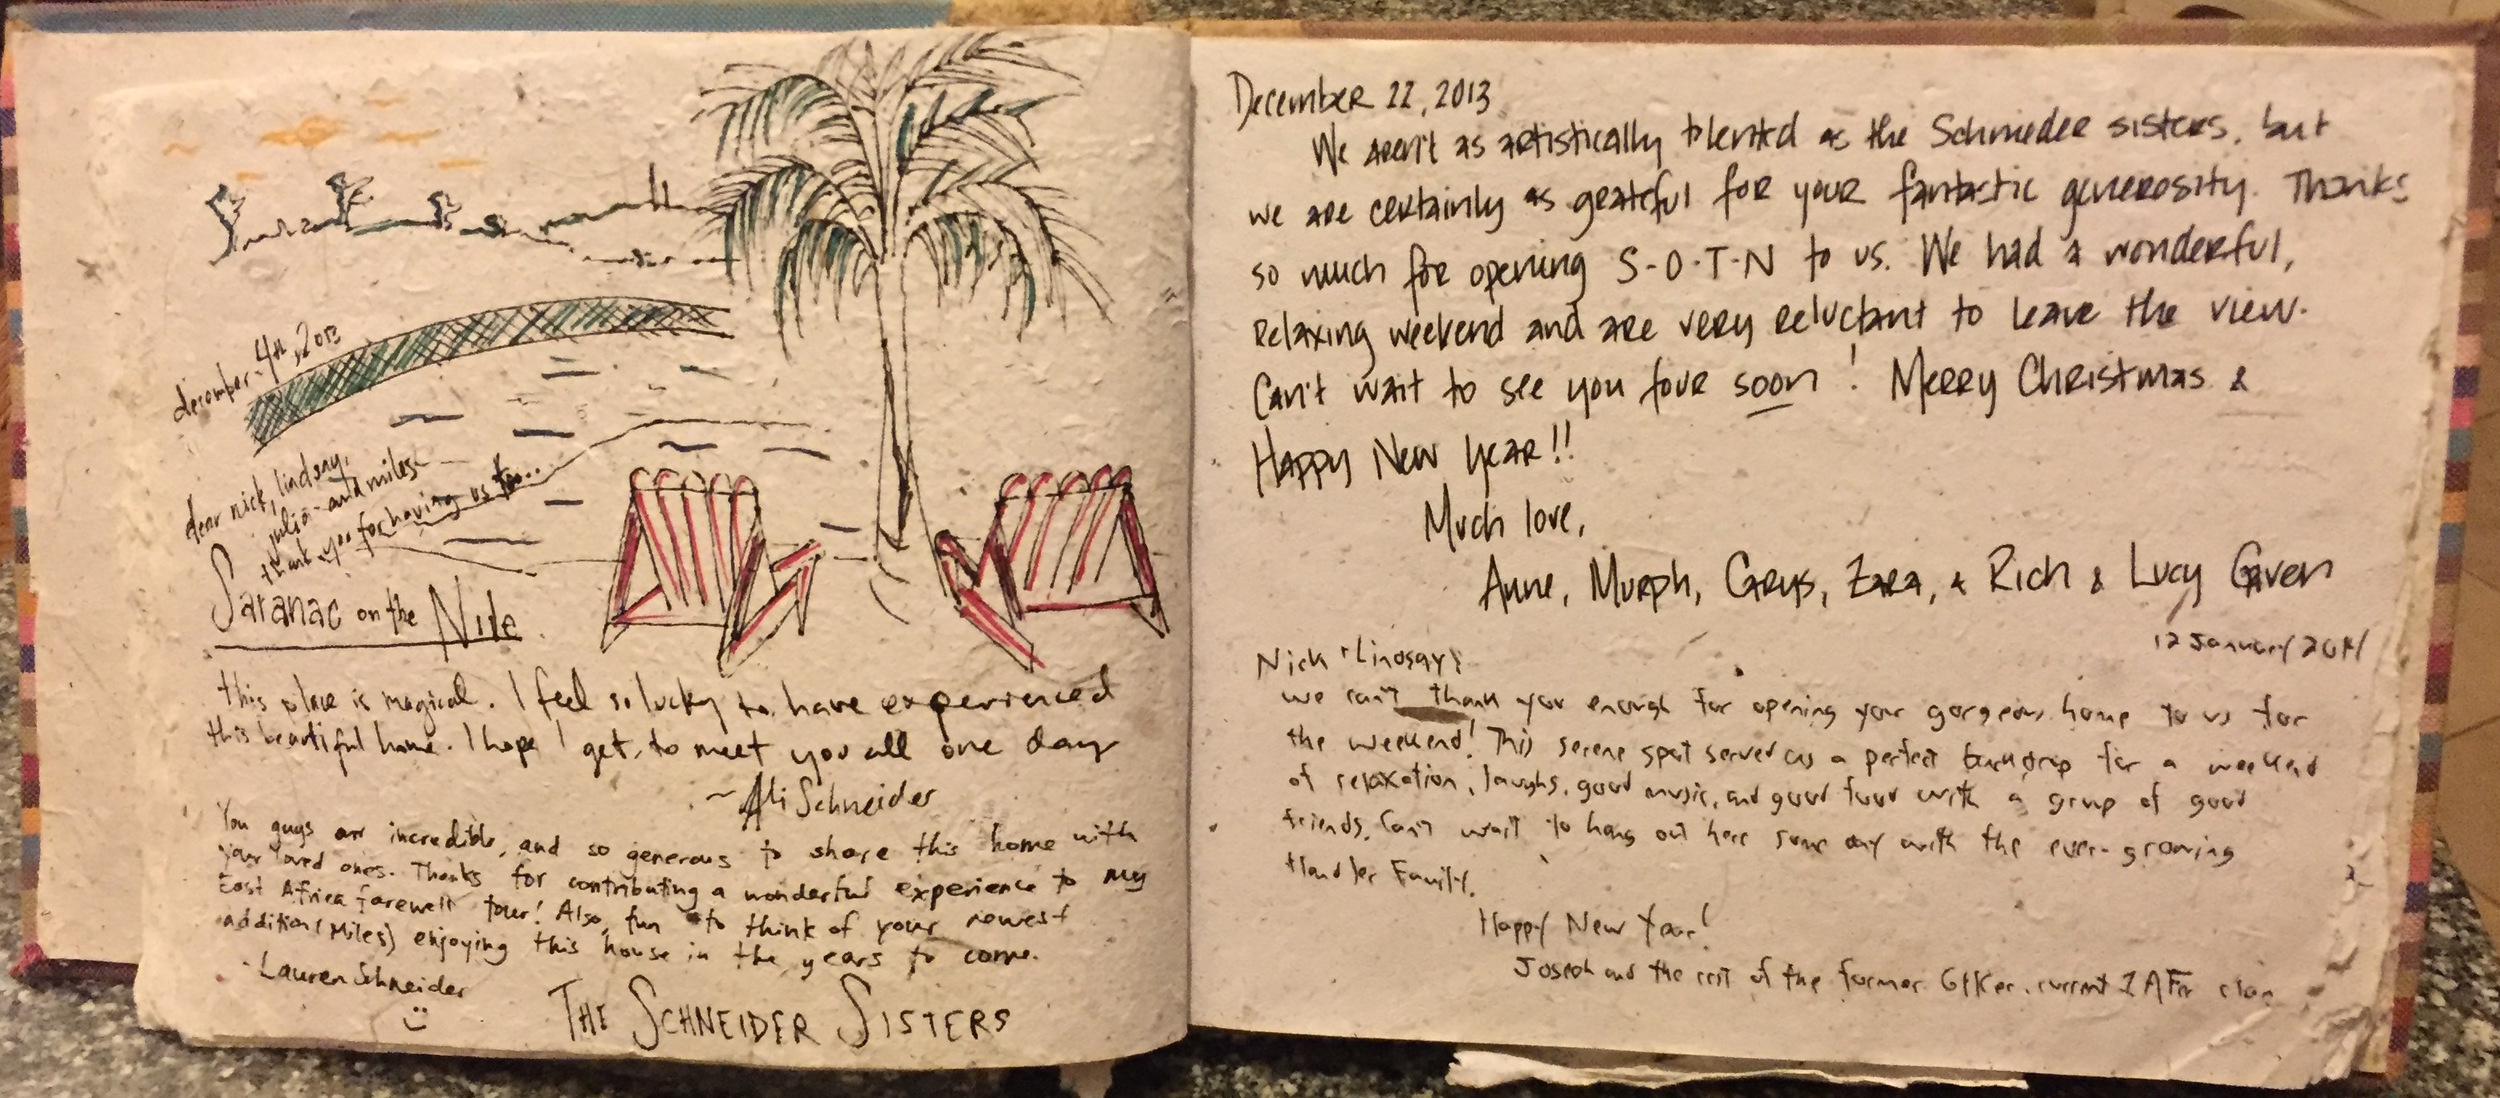 december 4th, 2013
dear nick, lindsay,
julia and miles
thank you for having us to...
Saranac on the Nile
this place is magical. I feel so lucky to have experienced
this beautiful home. I hope I get to meet you all one day
~Ali Schneider
You guys are incredible, and so generous to share this home with
your loved ones. Thanks for contributing a wonderful experience to my
East Africa farewell tour! Also, fun to think of your newest
addition (Miles) enjoying this house in the years to come.
- Lauren Schneider
THE SCHNEIDER SISTERS
December 22, 2013
We aren't as artistically talented as the Schneider sisters, but
we are certainly as grateful for your fantastic generosity. Thanks
so much for opening S-O-T-N to us. We had a wonderful,
relaxing weekend and are very reluctant to leave the view.
Can't wait to see you four soon! Merry Christmas &
Happy New Year!!
Much love,
Anne, Murph, Grys, Zara, & Rich & Lucy Given
12 January 2014
Nick + Lindsay,
We can't thank you enough for opening your gorgeous home to us for
the weekend! This serene spot served as a perfect backdrop for a weekend
of relaxation, laughs, good music, and good food with a group of good
friends. Can't wait to hang out here some day with the ever-growing
Handler Family.
Happy New Year!
Joseph and the rest of the former current clan